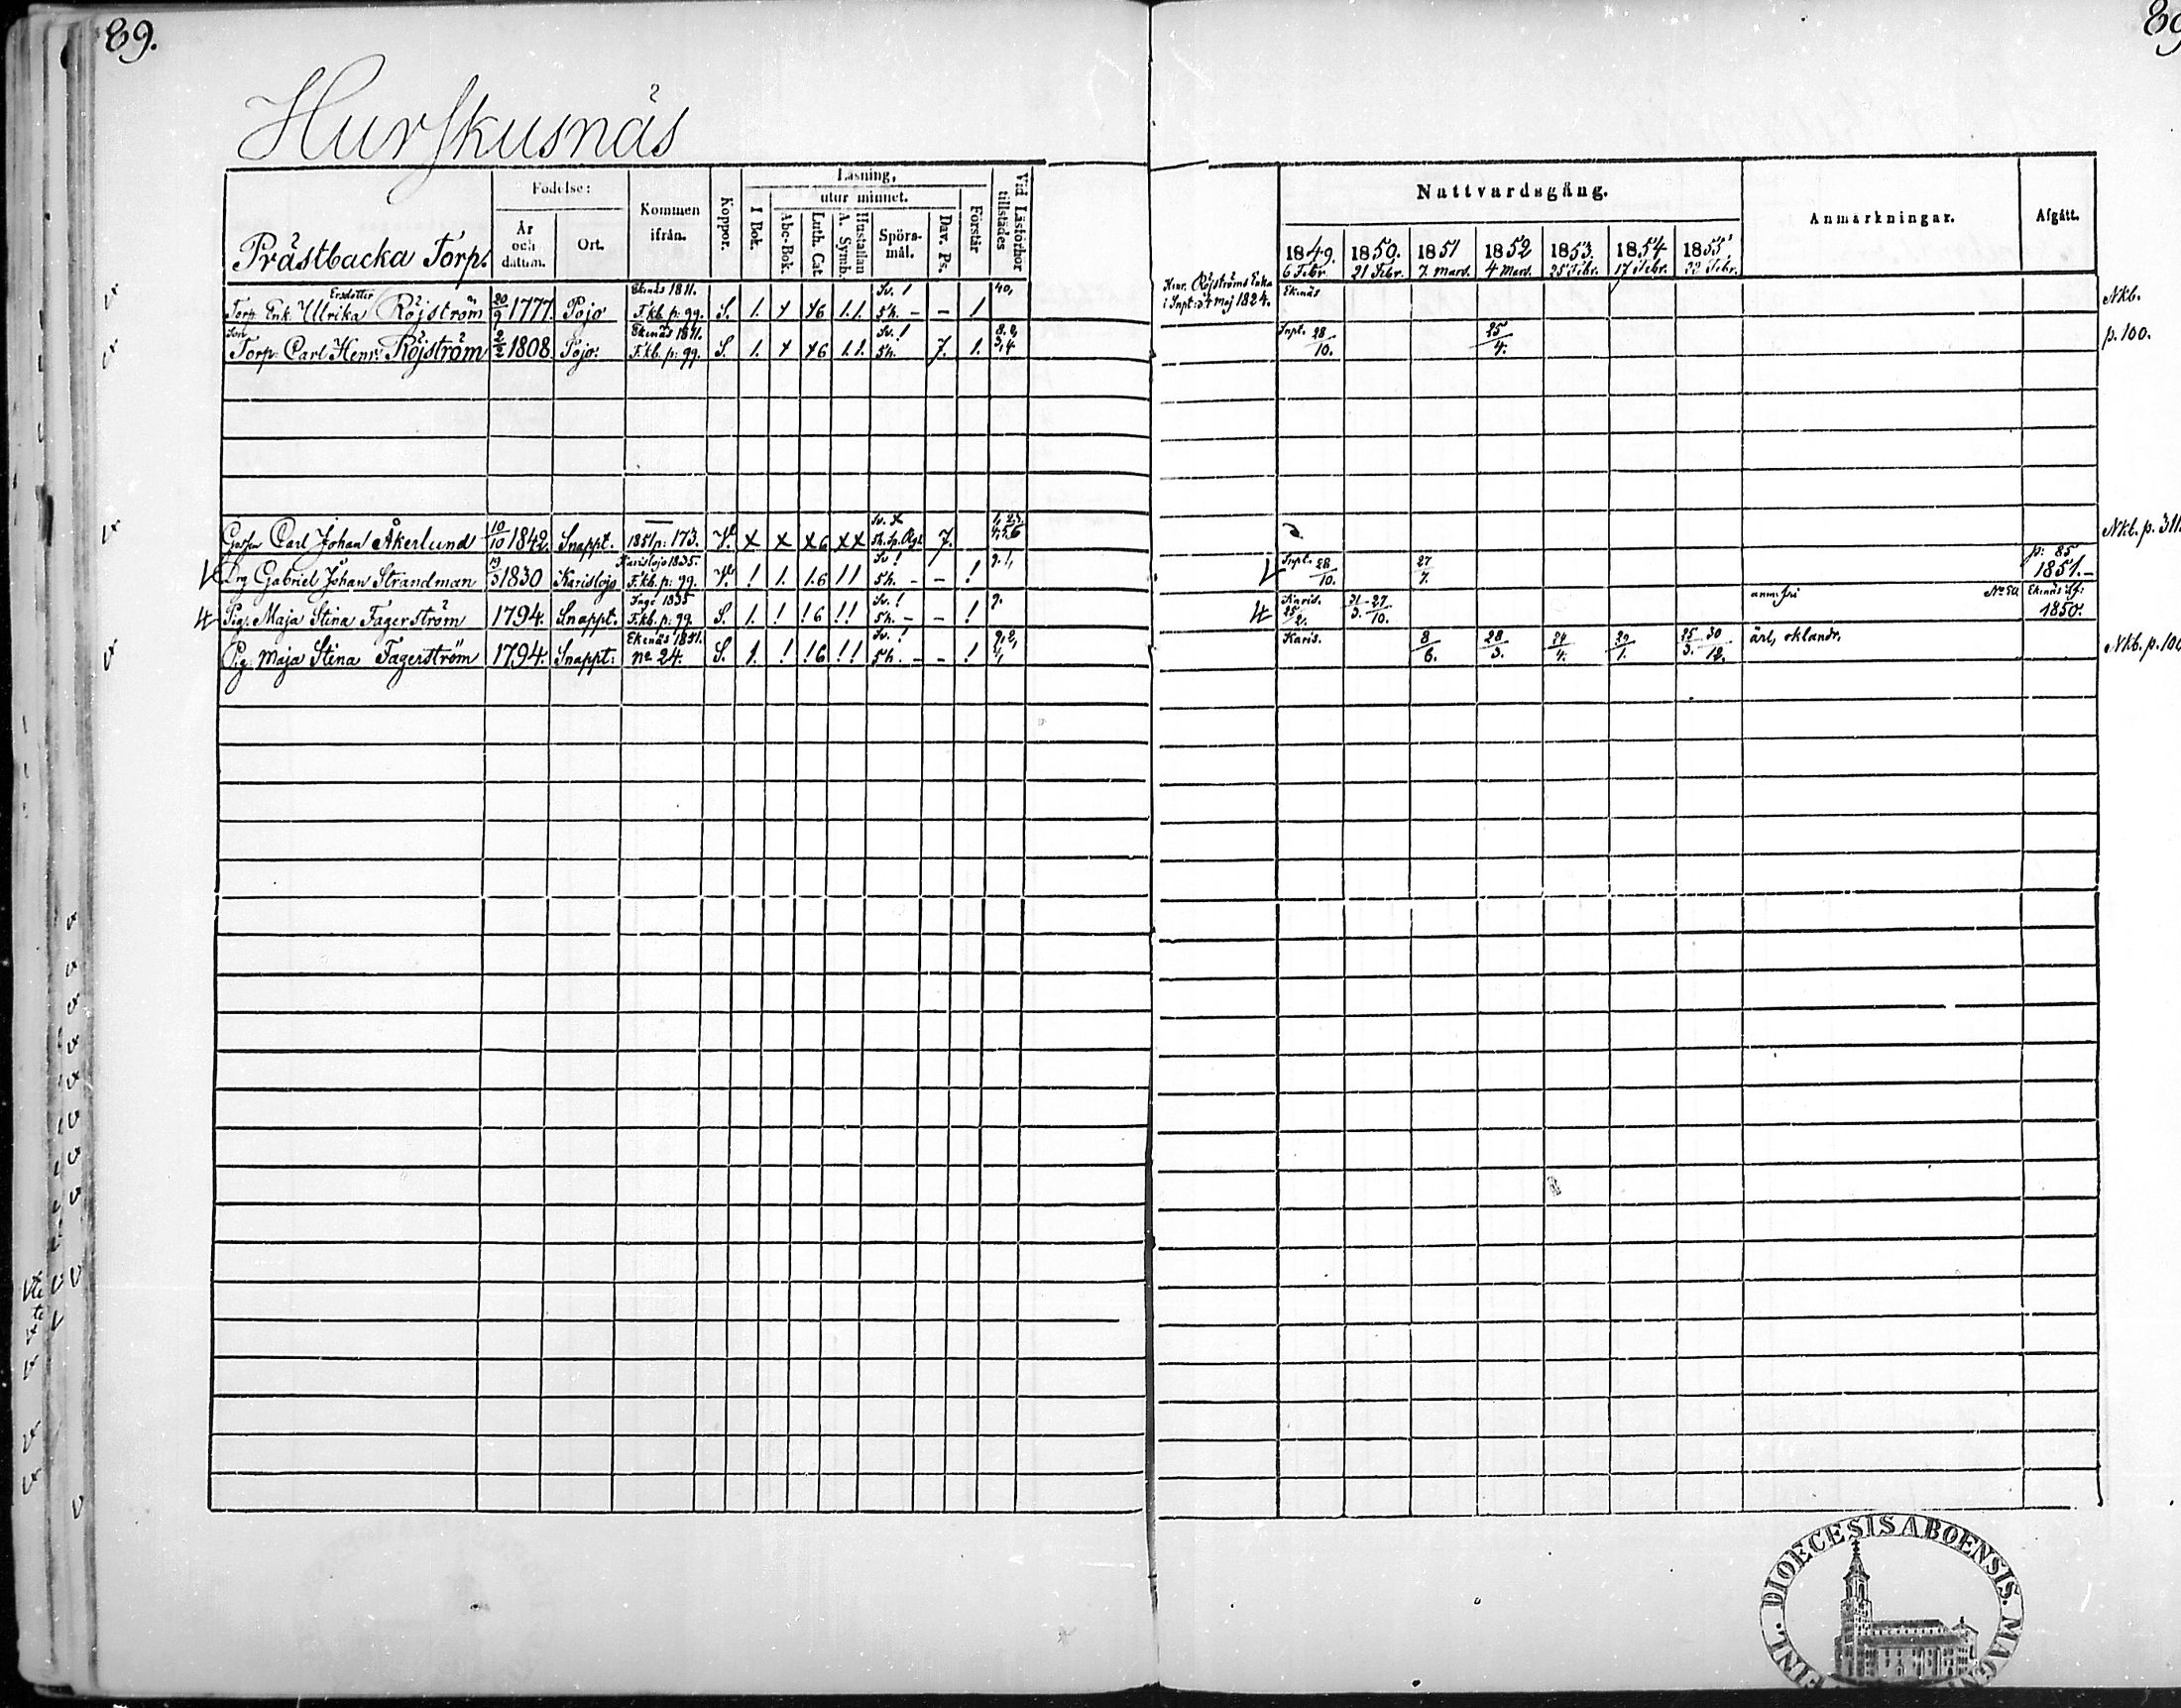 89.
89
Hurskusnäs
Prästbacka Torp.
Födelse:
År och datum.
Ort.
Kommen ifrån.
Koppor.
Läsning,
utur minnet.
I Bok.
Abc-Bok.
Luth. Cat
Hustaflan A. Symb.
Spörs-mål.
Dav. Ps.
Förstår
Vid Läsförhör tillstädes
Nattvardsgång.
Anmärkningar.
Afgått.
1849. 1850. 1851 1852 1853. 1854 1855
6 Febr. 21 Febr. 7 Mars. 4 Mars. 25 Febr. 17 Febr. 22 Febr.
Ersdotter Ekenäs 1811. Sv. ! 40,
Torp. Enk. Ulrika Röjström 20/9 1777. Pojo F.kb. p: 99. S. 1. 6 1.1. 5h. – – 1
Henr. Röjströms Enka
i Snpt: d. 4 Maj 1824.
Ekenäs Nkb.
Son Ekenäs 1811. Sv. ! 8.2, 3,4
Torp. Carl Henr: Röjström 2/2 1808. Pojo: F.kb. p: 99. S. 1. 6 1.1. 5h. 7. 1.
Snpt. 28/10. 25/4. p. 100.
Gossen Carl Johan Åkerlund 10/10 1842. Snappt. 1851 p: 173. V. x x x6 xx 7.
Nkb. p. 311
Karislojo 1835. Sv ! 9.1,
Drg Gabriel Johan Strandman 19/3 1830 Karislojo F.kb. p: 99. V. ! 1. 1.6 !! 5h. – – !
Snpt. 28/10. 27/7. p: 85 1851.–
1835 Sv. ! 9.
Pig. Maja Stina Fagerström 1794. Snappt. F.kb. p: 99. S. 1. ! !6 !! 5h. – – !
Karis. 25/2. 31/3. 27/10. No 50 Ekenäs 1850.
Ekenäs 1851. Sv. ! 9,2,
Pig. Maja Stina Fagerström 1794. Snappt: no 24. S. 1. ! !6 !! 5h. – – !
Karis. 8/6. 28/3. 24/4. 29/1. 25/3. 30/12. ärl, oklandr.
Nkb. p. 100
FINL. DIOECESIS ABOENSIS. MAG